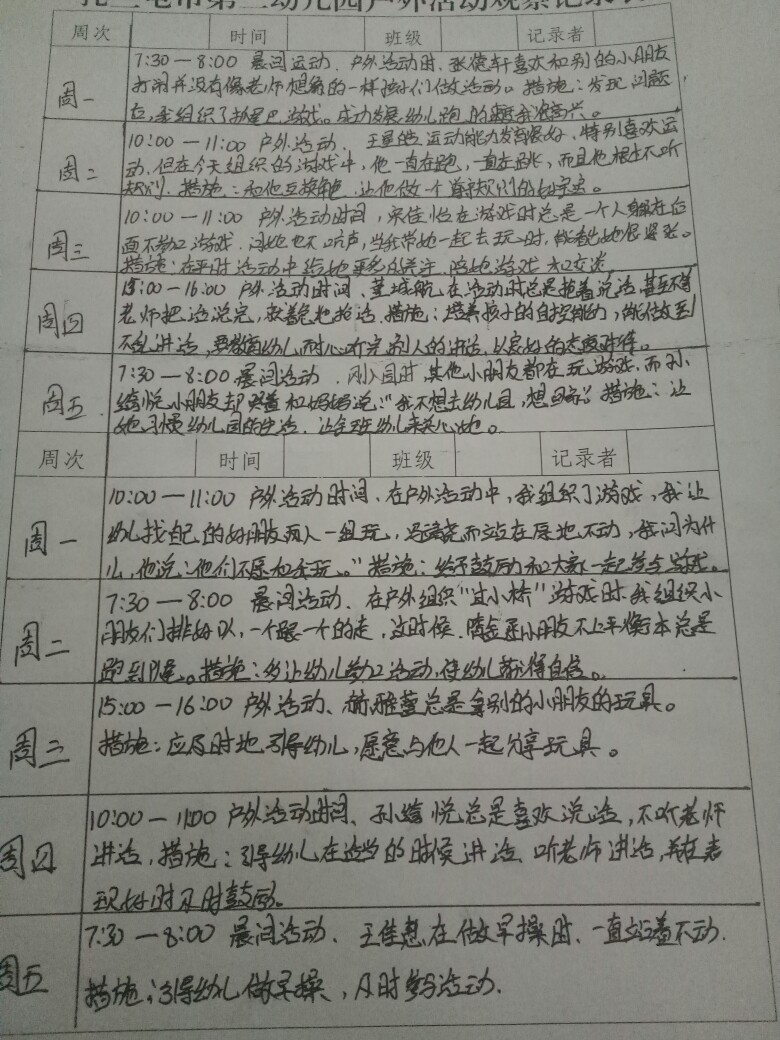 市第二幼儿园户外活动观察记录表
周次 时间 班级 记录者
周一 7:30—8:00 晨间运动、户外活动时,张德轩喜欢和别的小朋友
打闹并没有像老师想象的一样孩子们做活动。措施:发现问题
后,我组织了揪尾巴游戏。成功发展幼儿跑的
周二 10:00—11:00 户外活动、王星皓运动能力发育很好,特别喜欢运
动,但在今天组织的游戏中,他一直在跑,一直在跳,而且他根本不听
规则。措施:和他互换角色,让他做一个遵守规则的好宝宝。
周三 10:00—11:00 户外活动时间,宋佳怡在游戏时总是一个人躲在后
面不参加游戏,问她也不吭声,当我带她一起去玩时,能看出她很紧张。
措施:在平时活动中给她更多的关注,陪她游戏和交谈。
周四 15:00—16:00 户外活动时间、董城航在活动时总是抢着说话,甚至不等
老师把话说完,就着急地抢话。措施:培养孩子的自控能力,能做到
不乱讲话,要教育幼儿耐心听完别人的讲话,以良好的态度对待。
周五 7:30—8:00 晨间活动、刚入园时,其他小朋友都在玩游戏,而孙
绮悦小朋友却哭着和妈妈说:“我不想去幼儿园,想回家。”措施:让
她习惯幼儿园的生活,让全班幼儿来关心她。
周次 时间 班级 记录者
周一 10:00—11:00 户外活动时间、在户外活动中,我组织了游戏,我让
幼儿找自己的好朋友两人一组玩,冯 而站在原地不动,我问为什
么,他说:他们不愿和我玩。”措施:给予鼓励和大家一起参与游戏。
周二 7:30—8:00 晨间活动、在户外组织“过小桥”游戏时,我组织小
朋友们排好队,一个跟一个的走,这时候, 小朋友不上平衡木总是
跑到队尾。措施:多让幼儿参加活动,使幼儿获得自信。
周三 15:00—16:00 户外活动、 雅萱总是拿别的小朋友的玩具。
措施:应及时地引导幼儿,愿意与他人一起分享玩具。
周四 10:00—11:00 户外活动时间、孙绮悦总是喜欢说话,不听老师
讲话,措施:引导幼儿在适当的时候讲话、听老师讲话,并在表
现好时及时鼓励。
周五 7:30—8:00 晨间活动、王佳惠在做早操时、一直站着不动.
措施:引导幼儿做早操,及时参与活动.